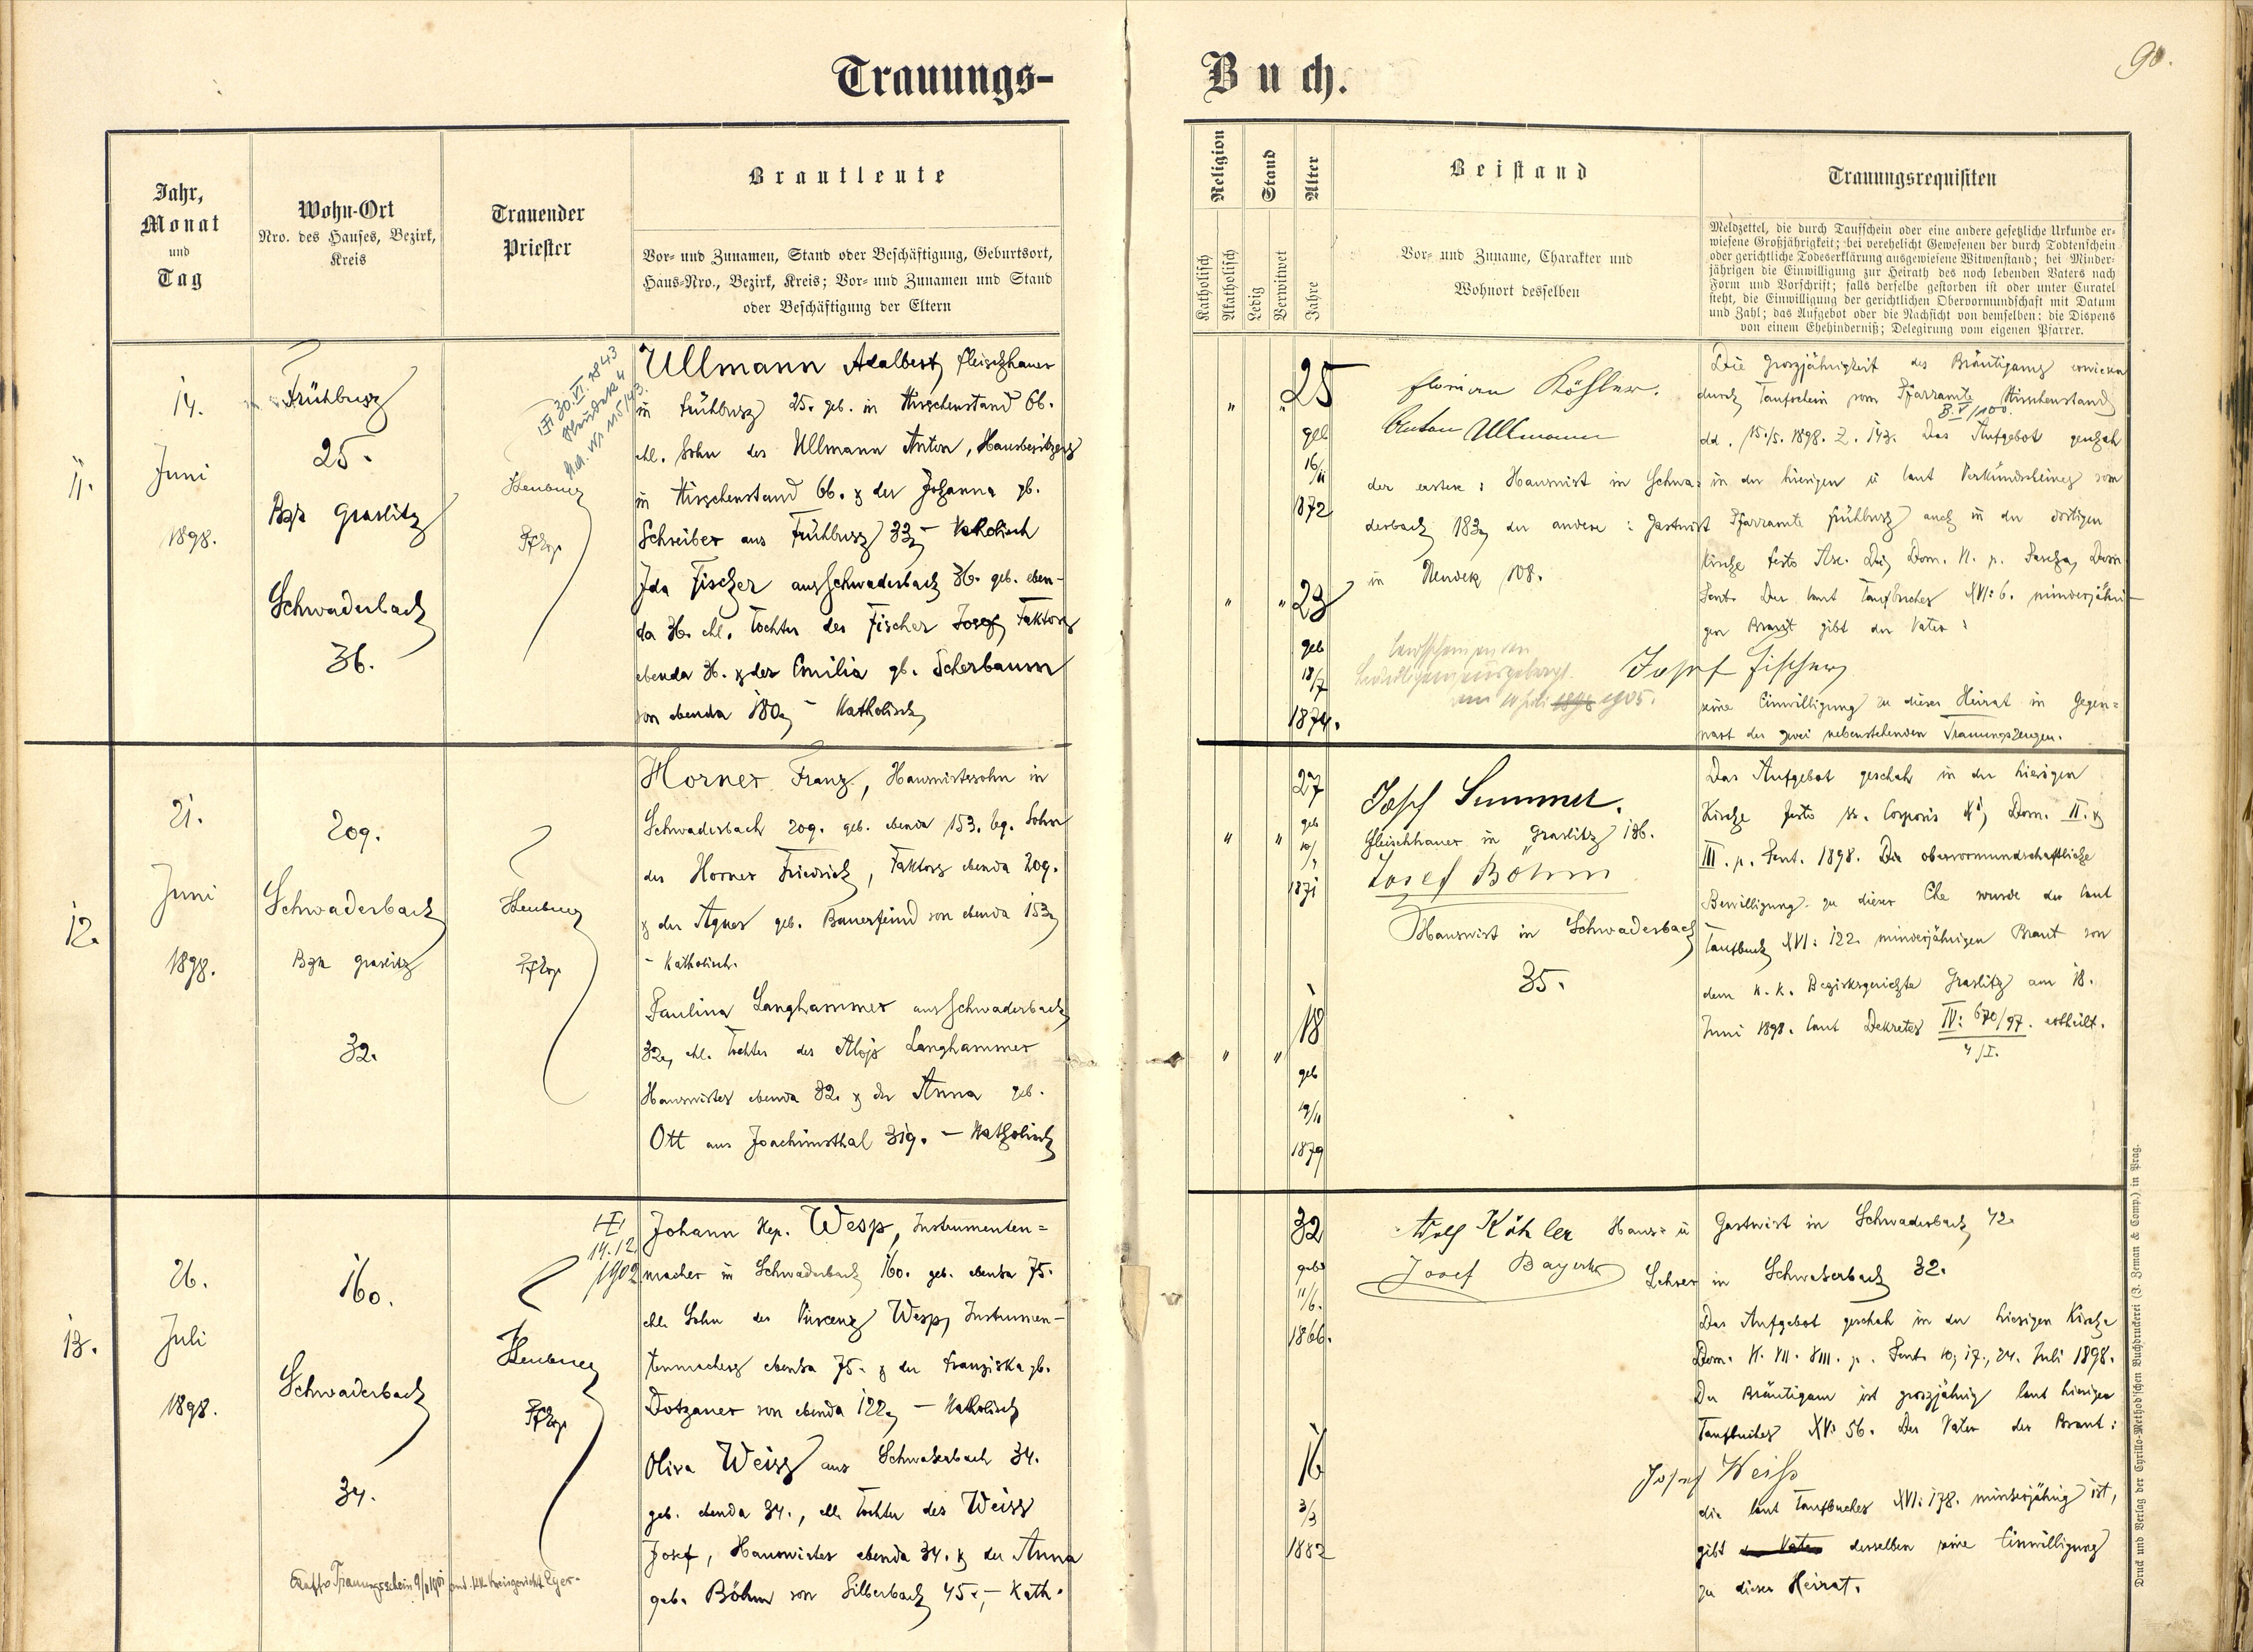 Trauungs-
Buch.
90.
Jahr,
Monat
und
Tag
Wohn-Ort
Nro. des Hauses, Bezirk,
Kreis
Trauender
Priester
Brautleute
Vor- und Zunamen, Stand oder Beschäftigung, Geburtsort,
Haus-Nro., Bezirk, Kreis; Vor- und Zunamen und Stand
oder Beschäftigung der Eltern
Religion
Katholisch
Akatholisch
Stand
Ledig
Verwitwet
Alter
Jahre
Beistand
Vor- und Zuname, Charakter und
Wohnort desselben
Trauungsrequisiten
Meldzettel, die durch Taufschein oder eine andere gesetzliche Urkunde er-
wiesene Großjährigkeit; bei verehelicht Gewesenen der durch Todtenschein
oder gerichtliche Todeserklärung ausgewiesene Witwenstand; bei Minder-
jährigen die Einwilligung zur Heirath des noch lebenden Vaters nach
Form und Vorschrift; falls derselbe gestorben ist oder unter Curatel
steht, die Einwilligung der gerichtlichen Obervormundschaft mit Datum
und Zahl; das Aufgebot oder die Nachsicht von demselben: die Dispens
von einem Ehehinderniß; Delegirung vom eigenen Pfarrer.
11.
14.
Juni
1898.
Frühbusz
25.
Bzk Graslitz
Schwaderbach
36.
30. VI. 1843
Ullmann Adalbert, Fleischhauer
in Frühbusz 25. geb. in Hirschenstand 66.
ehl. Sohn des Ullmann Anton, Hausbesitzers
in Hirschenstand 66. & der Johanna gb.
Schreiber aus Frühbusz 33, – Katholisch
Ida Fischer aus Schwaderbach 36. geb. eben-
da 36. ehl. Tochter des Fischer Josef, Faktors
ebenda 36. & der Emilia gb. Scherbaum
von ebenda 180, – Katholisch,
" " 25
geb
16/11
1872
" " 23
geb
18/7
1874.
Florian Köhler.
Anton Ullmann
der erstere: Hauswirt in Schwa-
derbach 183, der andere: Gastwirt
in Neudek 108.
am 10 Juli 1898 1905.
Die Groszjährigkeit des Bräutigams erwiesen
durch Taufschein vom Pfarramte Hirschenstand
B. V/100.
dd. 15./5. 1898. Z. 143. Das Aufgebot geschah
in der hiesigen u laut Verkündscheines vom
Pfarramte Frühbusz auch in der dortigen
Kirche festo Asc. Dni, Dom. VI. p. Pascha, Dom.
Pent. Der laut Taufbuches XVI: 6. minderjähri-
gen Braut gibt der Vater:
Josef Fischer
seine Einwilligung zu dieser Heirat in Gegen-
wart der zwei nebenstehenden Trauungszeugen.
12.
21.
Juni
1898.
209.
Schwaderbach
Bzk Graslitz
32.
Horner Franz, Hauswirtssohn in
Schwaderbach 209. geb. ebenda 153. leg. Sohn
des Horner Friedrich, Faktors ebenda 209.
& der Agnes geb. Bauerfeind von ebenda 153,
– Katholisch.
Paulina Langhammer aus Schwaderbach
32, ehl. Tochter des Alojs Langhammer
Hauswirtes ebenda 32. & der Anna geb.
Ott aus Joachimsthal 319. – Katholisch
" " 27
geb
1871
" " 18
geb
19/11
1879
Josef Summer.
Fleischhauer in Graslitz 186.
Josef Böhm
Hauswirt in Schwaderbach
35.
Das Aufgebot geschah in der hiesigen
Kirche festo ss. Corporis Xi, Dom. II. &
III. p. Pent. 1898. Die obervormundschaftliche
Bewilligung zu dieser Ehe wurde der laut
Taufbuch XVI: 122. minderjährigen Braut von
dem k. k. Bezirksgerichte Graslitz am 18.
Juni 1898. laut Dekretes IV: 670/97. ertheilt.
4/I.
13.
26.
Juli
1898.
160.
Schwaderbach
34.
14.12.
1902
Johann Nep. Wesp, Instrumenten-
macher in Schwaderbach 160. geb. ebenda 75.
ehl. Sohn des Vincenz Wesp, Instrumen-
tenmachers ebenda 75. & der Franziska gb.
Dotzauer von ebenda 122, – Katholisch
Oliva Weisz aus Schwaderbach 34.
geb. ebenda 34., ehl. Tochter des Weisz
Josef, Hauswirtes ebenda 34. & der Anna
geb. Böhm von Silberbach 45., – Kath.
32
geb
11/6.
1866.
16
3/3
1882
Adolf Köhler Haus- u Gastwirt in Schwaderbach 42.
Josef Bayerl Lehrer in Schwaderbach 32.
Das Aufgebot geschah in der hiesigen Kirche
Dom. VI. VII. VIII. p. Pent. 10, 17., 24. Juli 1898.
Der Bräutigam ist groszjährig laut hiesigen
Taufbuches XV: 56. Der Vater der Braut:
Josef Weiß
die laut Taufbuches XVI: 178. minderjährig ist,
gibt der Vater derselben seine Einwilligung
zu dieser Heirat.
Trauungsschein
Kreisgericht Eger.
Druck und Verlag der Cyrillo-Method'schen Buchdruckerei (J. Zeman & Comp.) in Prag.